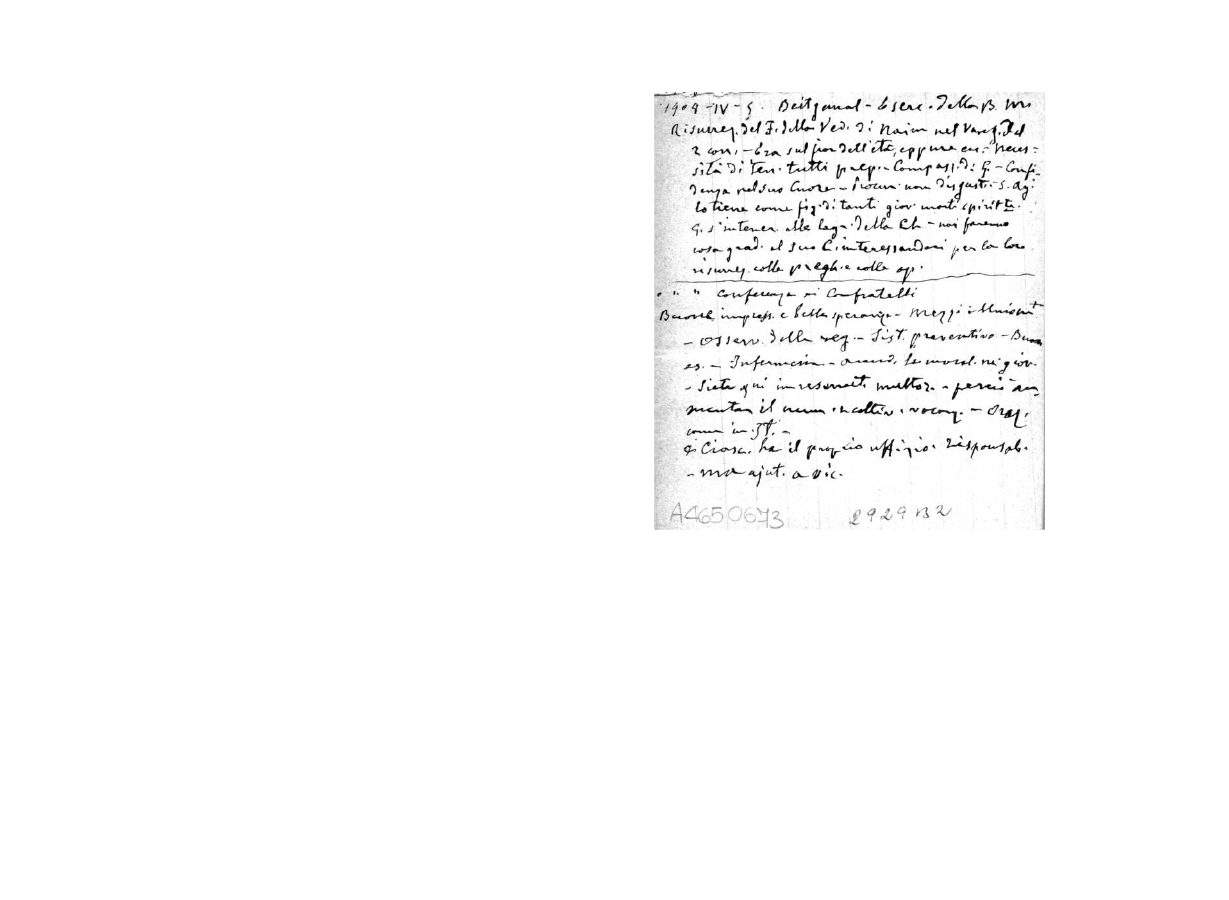 1908-IV-5. Beitgamal - Eserc. della B. M.
Risurrez. del F. della Ved. di Naim nel Vang. del
2 con. - Era sul fior dell'età, eppure
sità di ten. tutti prep. - Compass. di G. - Confi-
denza nel suo Cuore - Procur. non disgust. - S. Ag.
lo tiene come fig. di tanti giov. morti spirit
G. s'intener. alle lag. della Ch - noi faremo
cosa grad. al suo C. interessandoci per la loro
risurrez. colle pregh. e colle op.
" " " Conferenza ai Confratelli
impress. e bella speranza - Mezzi
- Osserv. della reg. - Sist. preventivo - Buon
es. - la moral. nei giov.
- Siete qui - perciò au-
mentar il num. - Oraz.
comun in
Ciasc. ha il proprio uffizio. Responsab.
- ma ajut. a vic.
A4650673 2929B2